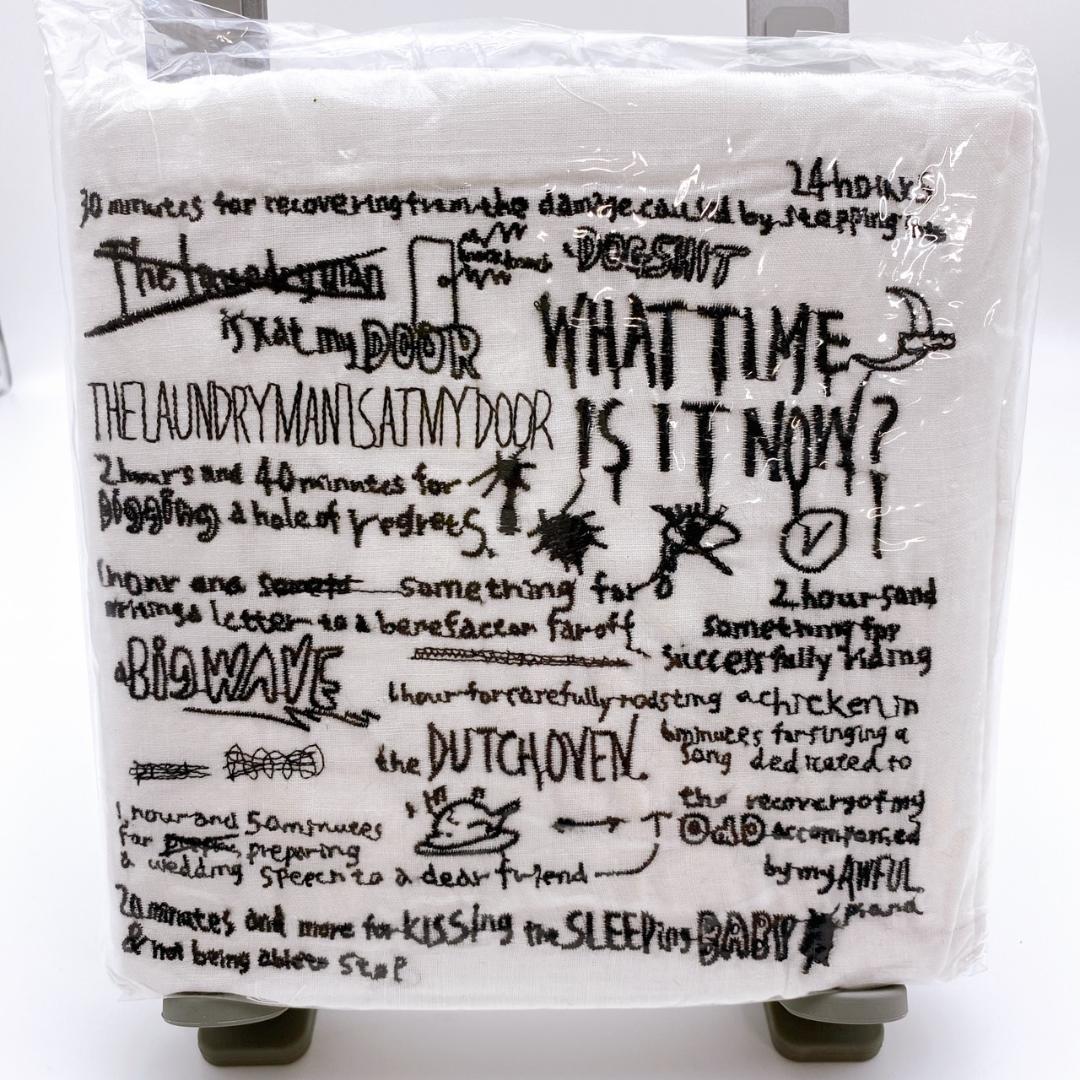 24 hours
30 minutes for recovering from the damage caused by stepping in
DOGSHIT
The laundryman
knock knock
is at my DOOR
WHAT TIME
THE LAUNDRYMAN IS AT MY DOOR
IS IT NOW?
2 hours and 40 minutes for
Digging a hole of regrets.
1 hour and something for
writing a letter to a benefactor far off
2 hours and
something for
successfully riding
a BIG WAVE
1 hour for carefully roasting a chicken in
the DUTCH OVEN.
6 minutes for singing a
song dedicated to
the recovery of my
DAD accompanied
by my AWFUL
piano
1 hour and 50 minutes
for preparing
a wedding speech to a dear friend
20 minutes and more for KISSing the SLEEPing BABY
& not being able to stop